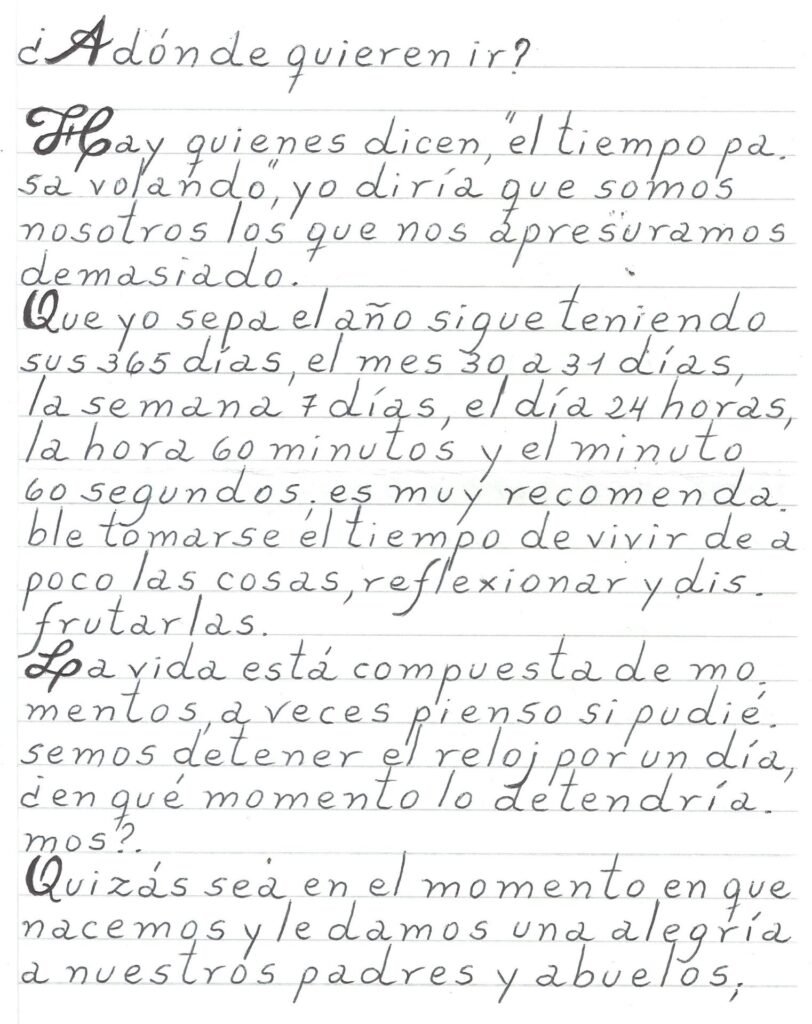 ¿Adónde quieren ir?
Hay quienes dicen, "el tiempo pa.
sa volando", yo diría que somos
nosotros los que nos apresuramos
demasiado.
Que yo sepa el año sigue teniendo
sus 365 días, el mes 30 a 31 días,
la semana 7 días, el día 24 horas,
la hora 60 minutos y el minuto
60 segundos. es muy recomenda.
ble tomarse el tiempo de vivir de a
poco las cosas, reflexionar y dis.
frutarlas.
La vida está compuesta de mo.
mentos, a veces pienso si pudié.
semos detener el reloj por un día,
¿en qué momento lo detendría.
mos?.
Quizás sea en el momento en que
nacemos y le damos una alegría
a nuestros padres y abuelos;